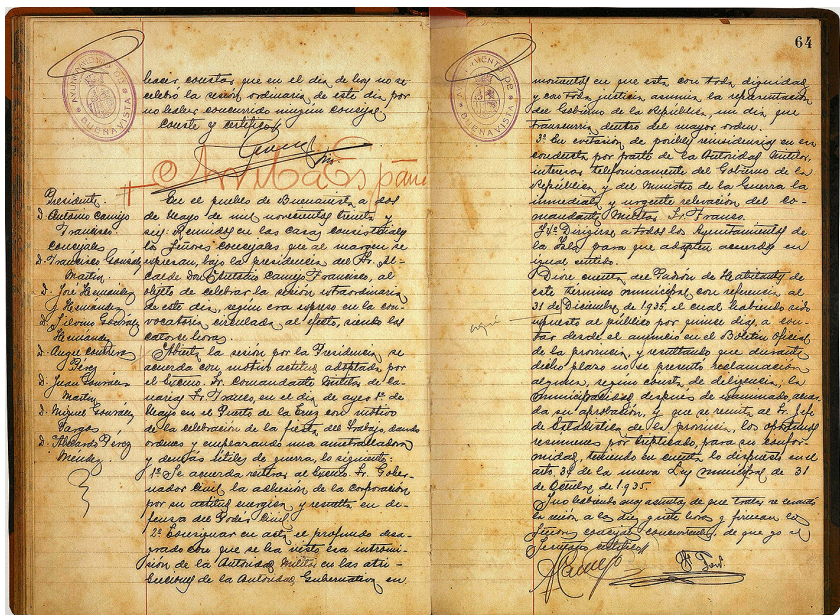 AYUNTAMIENTO DE
BUENAVISTA
hacer constar que en el dia de hoy no se
celebró la sesión ordinaria de este dia por
no haber concurrido ningun concejal
Conste y certifico
Arriba España
Presidente.
D. Antonio Camejo
Francisco.
Concejales
D. Francisco González
Martín
D. José Hernández
y Hernández
González
Hernández
D. Angel Contreras
Pérez
D. Juan González
Martín
D. Miguel González
Vargas
D. Abelardo Pérez
Méndez
En el pueblo de Buenavista a dos
de Mayo de mil novecientos treinta y
seis. Reunidos en las casas consistoriales
los Señores concejales que al margen se
expresan, bajo la presidencia del Sr. Al-
calde Don Camejo Francisco, al
objeto de celebrar la sesión extraordinaria
de este dia, según era expreso en la con-
vocatoria circulada al efecto, siendo las
catorce horas
Abierta la sesión por la Presidencia se
acuerda con motivo actitud adoptada por
el Excmo. Sr. Comandante Militar de Ca-
narias Sr. Franco, en el dia de ayer 1º de
Mayo en el Puerto de la Cruz con motivo
de la celebración de la fiesta del trabajo, dando
ordenes y emplazando una ametralladora
y demás utiles de guerra, lo siguiente:
1º Se acuerda reiterar al Excmo. Sr. Gober-
nador Civil la adhesión de la corporación
por su actitud energica y resuelta en de-
fensa del Poder Civil.
2º Consignar en acta el profundo desa-
grado con que se ha visto esa intromi-
sión de la Autoridad Militar en las atri-
buciones de la Autoridad Gubernativa en
64
AYUNTAMIENTO DE
BUENAVISTA
momentos en que esta con toda dignidad
y con toda justicia asumia la representacion
del Gobierno de la República, un dia que
transcurria dentro del mayor orden.
3º En evitación de posibles reincidencias en esa
conducta por parte de la Autoridad Militar,
interesar telefonicamente del Gobierno de la
República y del Ministro de la Guerra la
inmediata y urgente relevación del Co-
mandante Militar Sr. Franco.
4º Dirigirse a todos los Ayuntamientos de
la Isla para que adopten acuerdo en
igual sentido.
Diose cuenta del Padrón de Habitantes de
este termino municipal con referencia al
31 de Diciembre de 1935, el cual habiendo sido
expuesto al público por quince dias a con-
tar desde el anuncio en el Boletin Oficial
de la provincia, y resultando que durante
dicho plazo no se presentó reclamación
alguna, según consta de diligencia, la
Municipalidad después de examinado, acuer-
da su aprobación, y que se remita al Sr. Jefe
de Estadistica de la provincia, los oportunos
resumenes por triplicado, para su confor-
midad, teniendo en cuenta lo dispuesto en el
arto. 39 de la nueva Ley municipal de 31
de Octubre de 1935.
Y no habiendo mas asuntos de que tratar se levantó
la sesión a las diez y siete horas y firman los
Señores concejales concurrentes, de que yo el
Secretario certifico
aquí